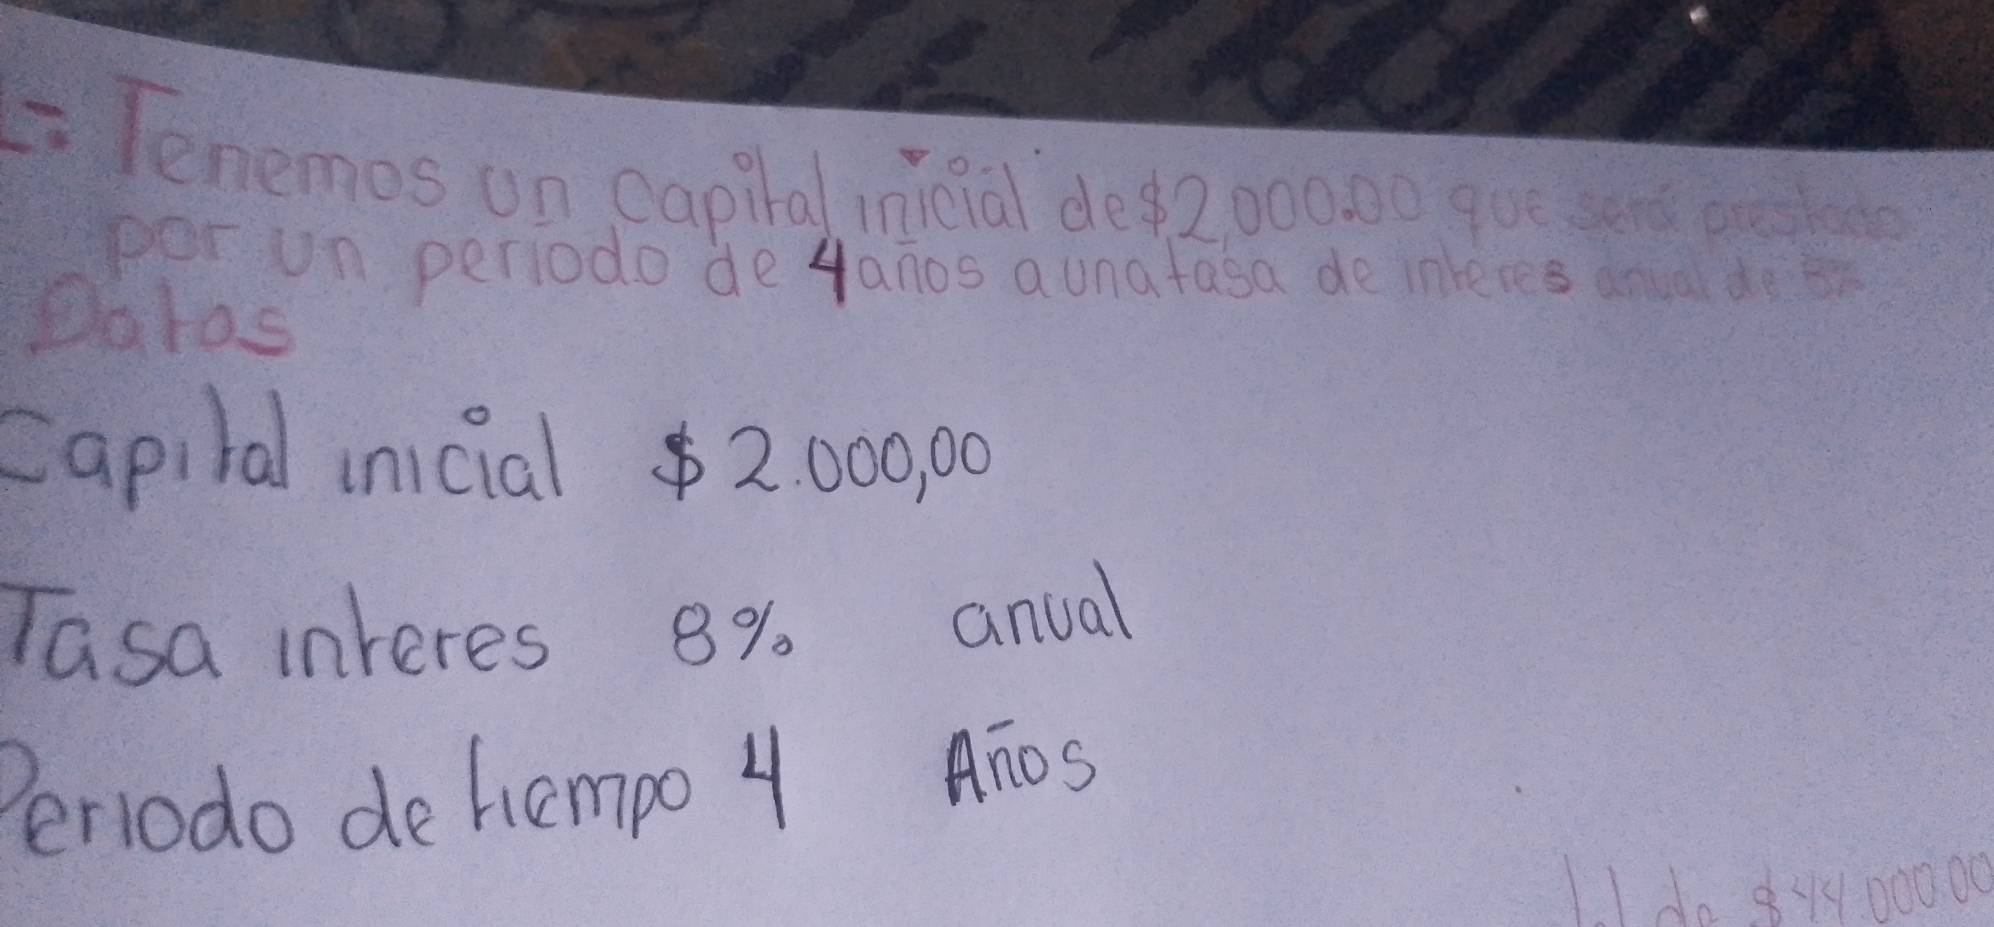 Tenemos un capital inicial de $2,000.00 que será prestado
por un periodo de 4 años a una tasa de interes anual de
Datos
Capital inicial $2.000,00
Tasa interes 8% anual
Periodo de tiempo 4 Años
de $44.000.00